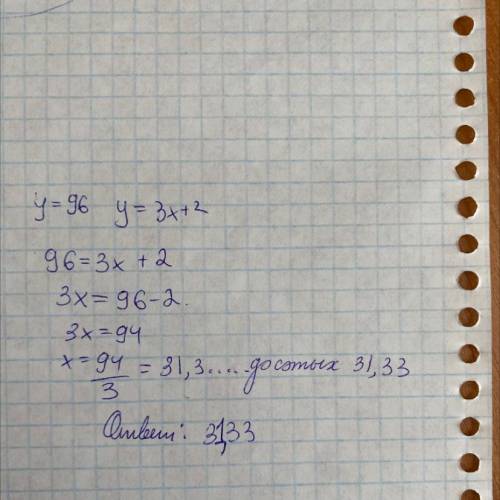 y=96 y=3x+2
96=3x+2
3x=96-2.
3x=94
x=94/3=31,3.....до сотых 31,33
Ответ: 31,33